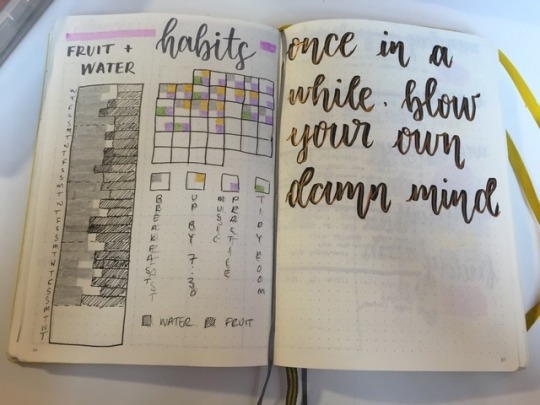 FRUIT +
WATER
habits
BREAKFAST
UP BY 7:30
MUSIC
PRACTICE
TIDY ROOM
WATER
FRUIT
once in a
while. blow
your own
damn mind